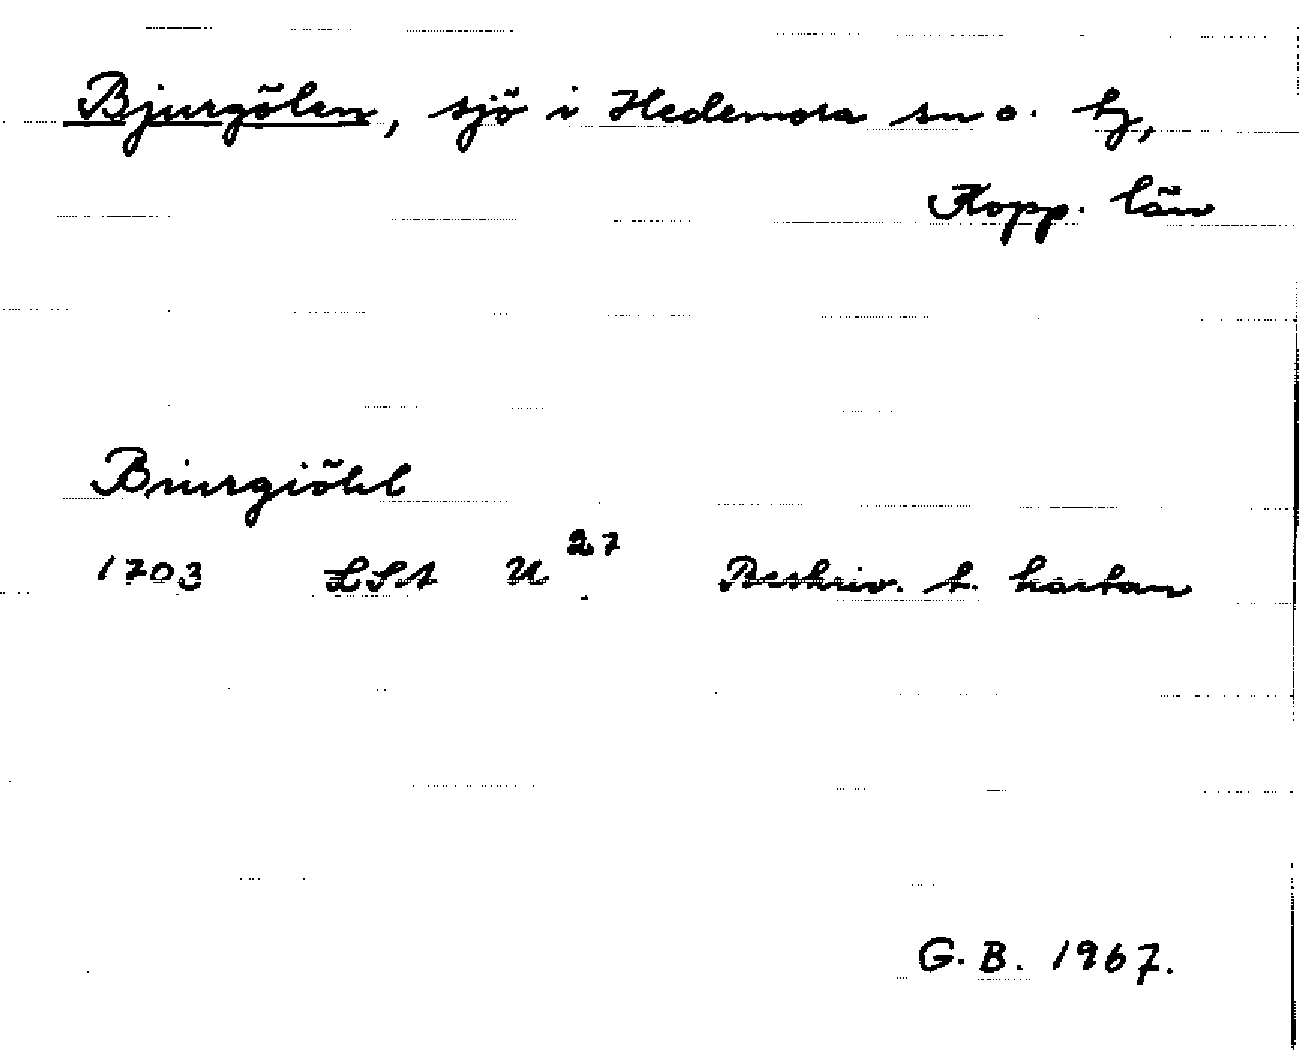 Bjurgölen, sjö i Hedemora sn o. hj,
Kopp. län
Biurgiöhl
1703 LSA U 27 Beskriv. t. kartan
G. B. 1967.